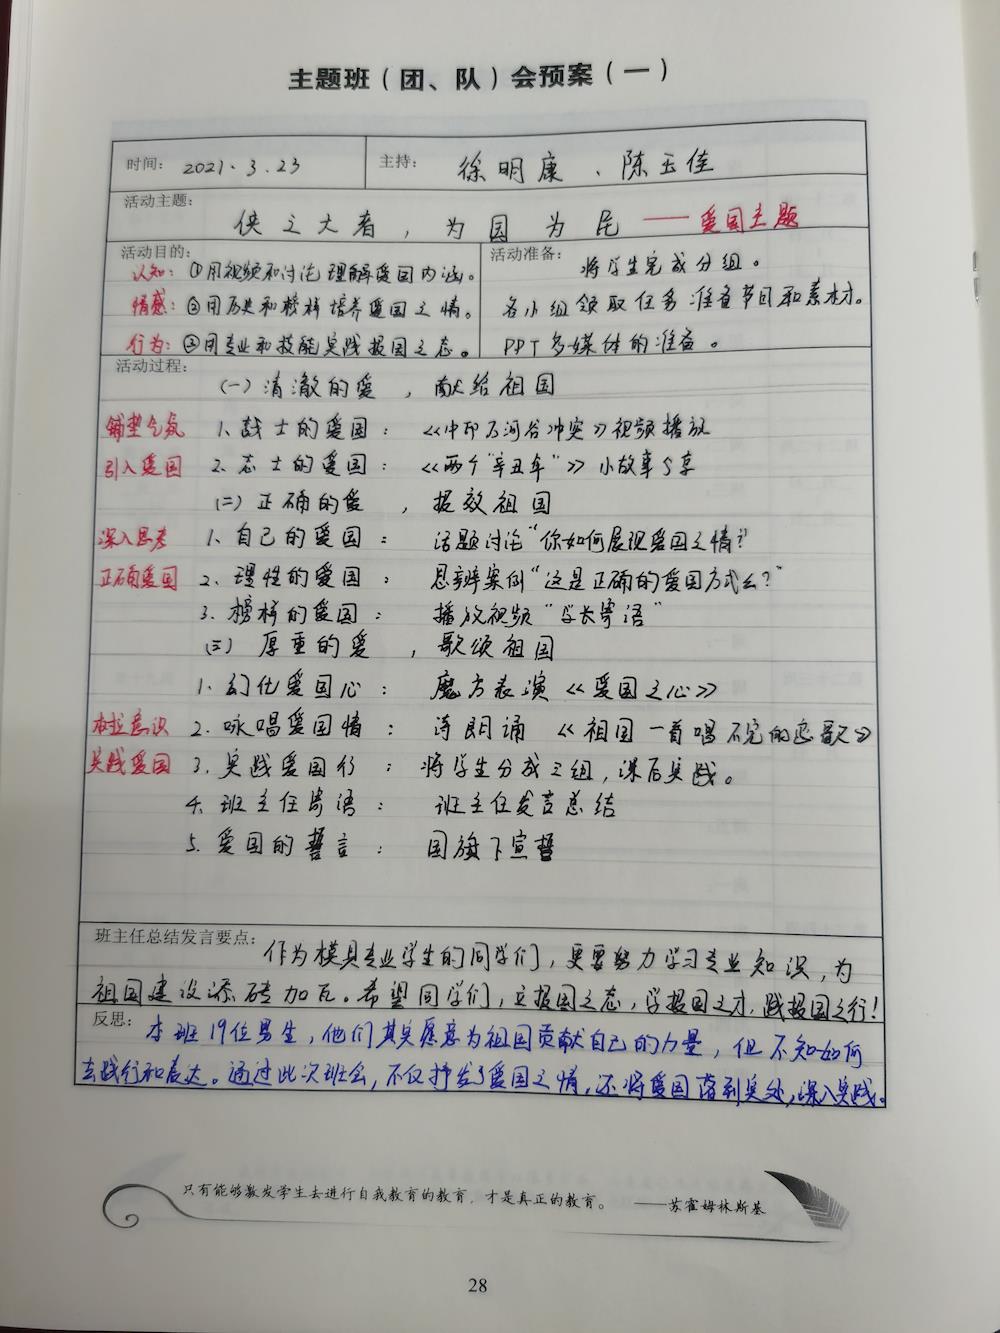 主题班（团、队）会预案（一）
时间：2021.3.23 主持：徐明康、陈玉佳
活动主题：
侠之大者，为国为民——爱国主题
活动目的：
认知：①用视频和讨论理解爱国内涵。
情感：②用历史和榜样培养爱国之情。
行为：③用专业和技能实践报国之志。
活动准备：
将学生完成分组。
各小组领取任务准备节目和素材。
PPT多媒体的准备。
活动过程：
（一）清澈的爱，献给祖国
铺垫气氛 1、战士的爱国：《中印加河谷冲突》视频播放
引入爱国 2、志士的爱国：《两个"辛丑年"》小故事分享
（二）正确的爱，报效祖国
深入思考 1、自己的爱国：话题讨论"你如何展现爱国之情？"
正确爱国 2、理性的爱国：思辨案例"这是正确的爱国方式么？"
3、榜样的爱国：播放视频"学长寄语"
（三）厚重的爱，歌颂祖国
1、幻化爱国心：魔方表演《爱国之心》
本位意识 2、咏唱爱国情：诗朗诵《祖国一首唱不完的恋歌》
实践爱国 3、实践爱国行：将学生分成三组，课后实践。
4、班主任寄语：班主任发言总结
5、爱国的誓言：国旗下宣誓
班主任总结发言要点：
作为模具专业学生的同学们，更要努力学习专业知识，为
祖国建设添砖加瓦。希望同学们，立报国之志，学报国之才，践报国之行！
反思：
本班19位男生，他们其实愿意为祖国贡献自己的力量，但不知如何
去践行和表达。通过此次班会，不仅抒发了爱国之情，还将爱国落到实处，深入实践。
只有能够激发学生去进行自我教育的教育，才是真正的教育。 ——苏霍姆林斯基
28